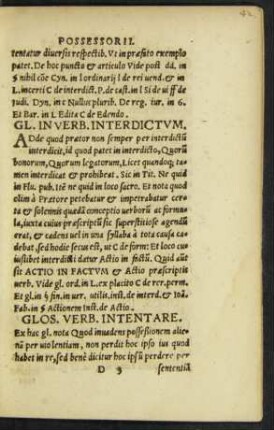 POSSESSORII.
tentatur diuersis respectib. Vt in præsato exemplo
patet. De hoc puncto & articulo Vide post dd. in
§ nihil cõe Cyn. in l ordinarij l de rei uend. & in
L. incerti C de interdict. P. de cast. in l Si de ui ff de
Iudi. Dyn. in c Nullus plurib. De reg. iur. in 6.
Et Bar. in L Edita C de Edendo.
GL. IN VERB. INTERDICTVM.
ADde quod prætor non semper per interdictũ
interdicit, id quod patet in interdicto, Quorũ
bonorum, Quorum legatorum, Licet quandoq; ta-
men interdicat & prohibeat. Sic in Tit. Ne quid
in Flu. pub. Itẽ ne quid in loco sacro. Et nota quod
olim à Prætore petebatur & impetrabatur certa
ta & solemnis quædã conceptio uerborũ at formu-
la, iuxta cuius præscriptũ sic superstitiose agendũ
erat, & cadens uel in una syllaba à tota causa ca-
debat, sed hodie secus est, ut C de form: Et loco cu-
iuslibet interdicti datur Actio in factũ. Quid aũt
sit ACTIO IN FACTVM & Actio præscriptis
uerb. Vide gl. ord. in L. ex placito C de rer. perm.
Et gl. in § fin. in uer. utilis. inst. de interd. & Ioã.
Fab. in § Actionem Inst. de Actio.
GLOS. VERB. INTENTARE.
Ex hac gl. nota Quod inuadens possessionem alie-
nã per uiolentiam, non perdit hoc ipso ius quod
habet in re, sed benè dicitur hoc ipsũ perdere per
D 3 sententiã